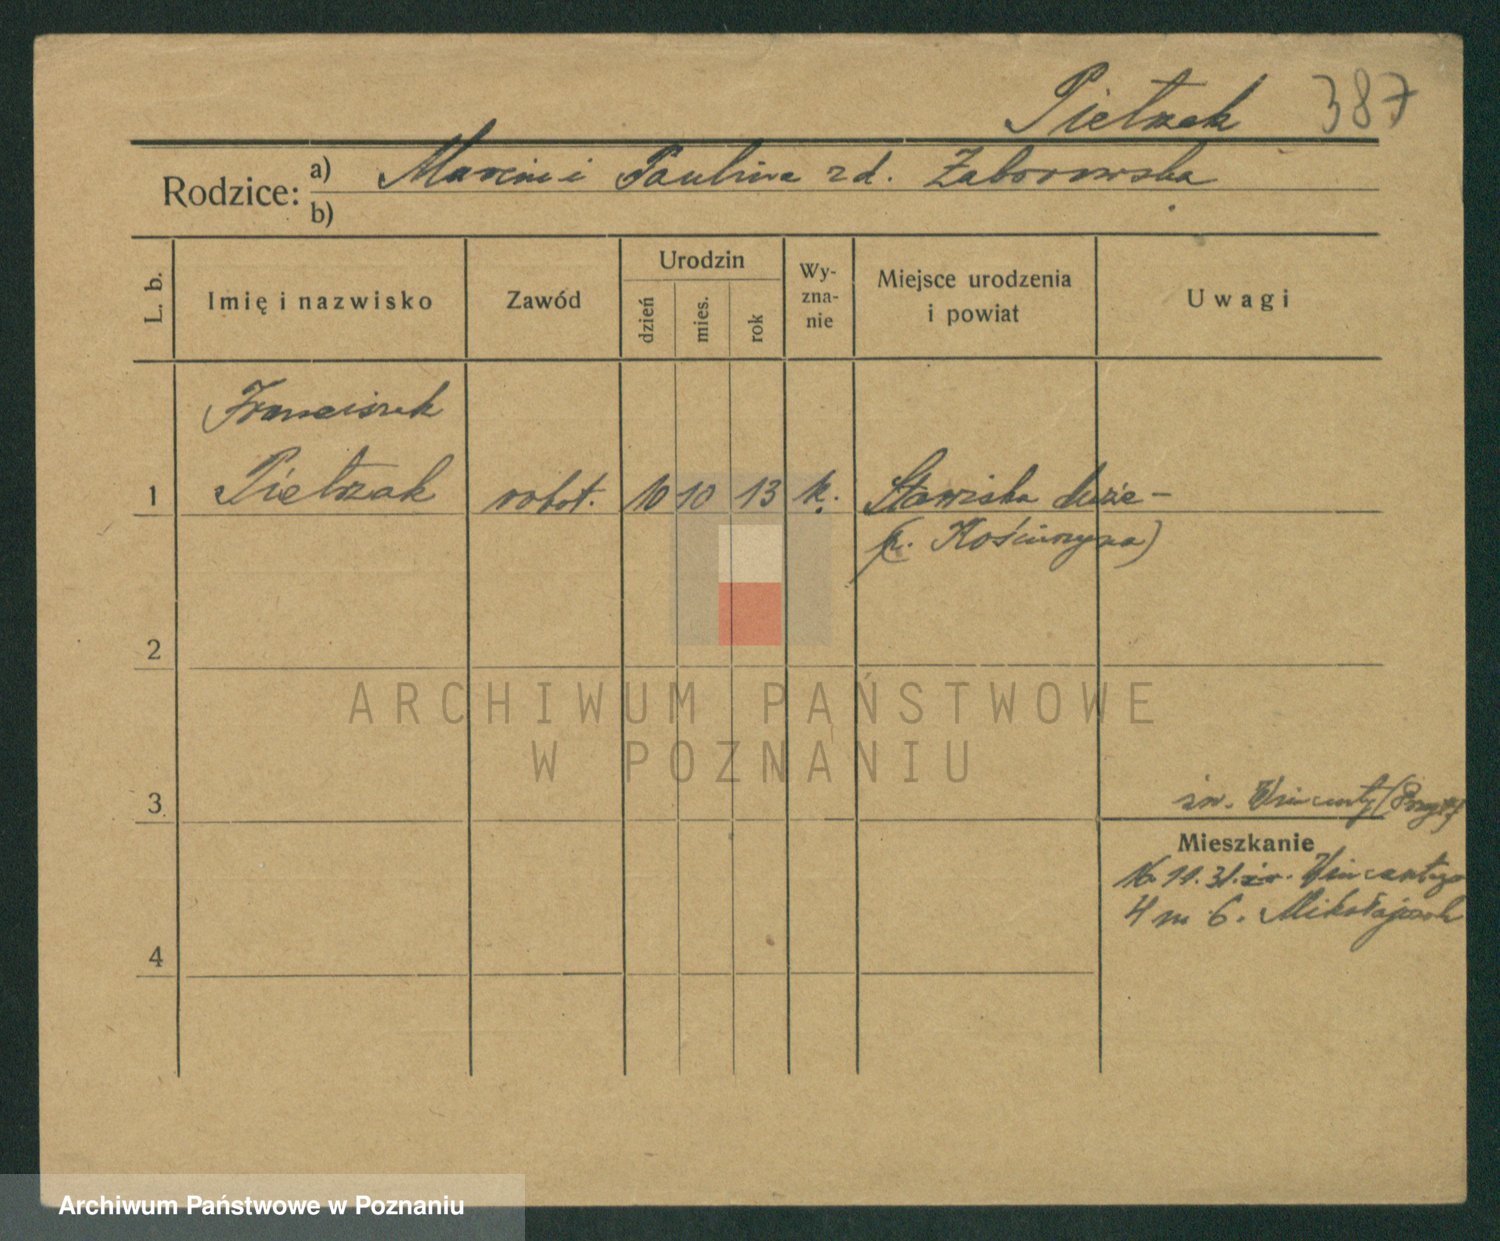 Pietrzak 387
Rodzice: a) Marcin i Paulina zd. Zaborowska
b)
L. b. Imię i nazwisko Zawód Urodzin dzień mies. rok Wy-zna-nie Miejsce urodzenia i powiat Uwagi
Franciszek
1 Pietrzak robot. 10 10 13 k. Stawiska duże -
(p. Kościerzyna)
2
ARCHIWUM PAŃSTWOWE
W POZNANIU
3 św. Wincenty
Mieszkanie
16.11.31. św. Wincentego
4 m 6. Mikołajczak
4
Archiwum Państwowe w Poznaniu